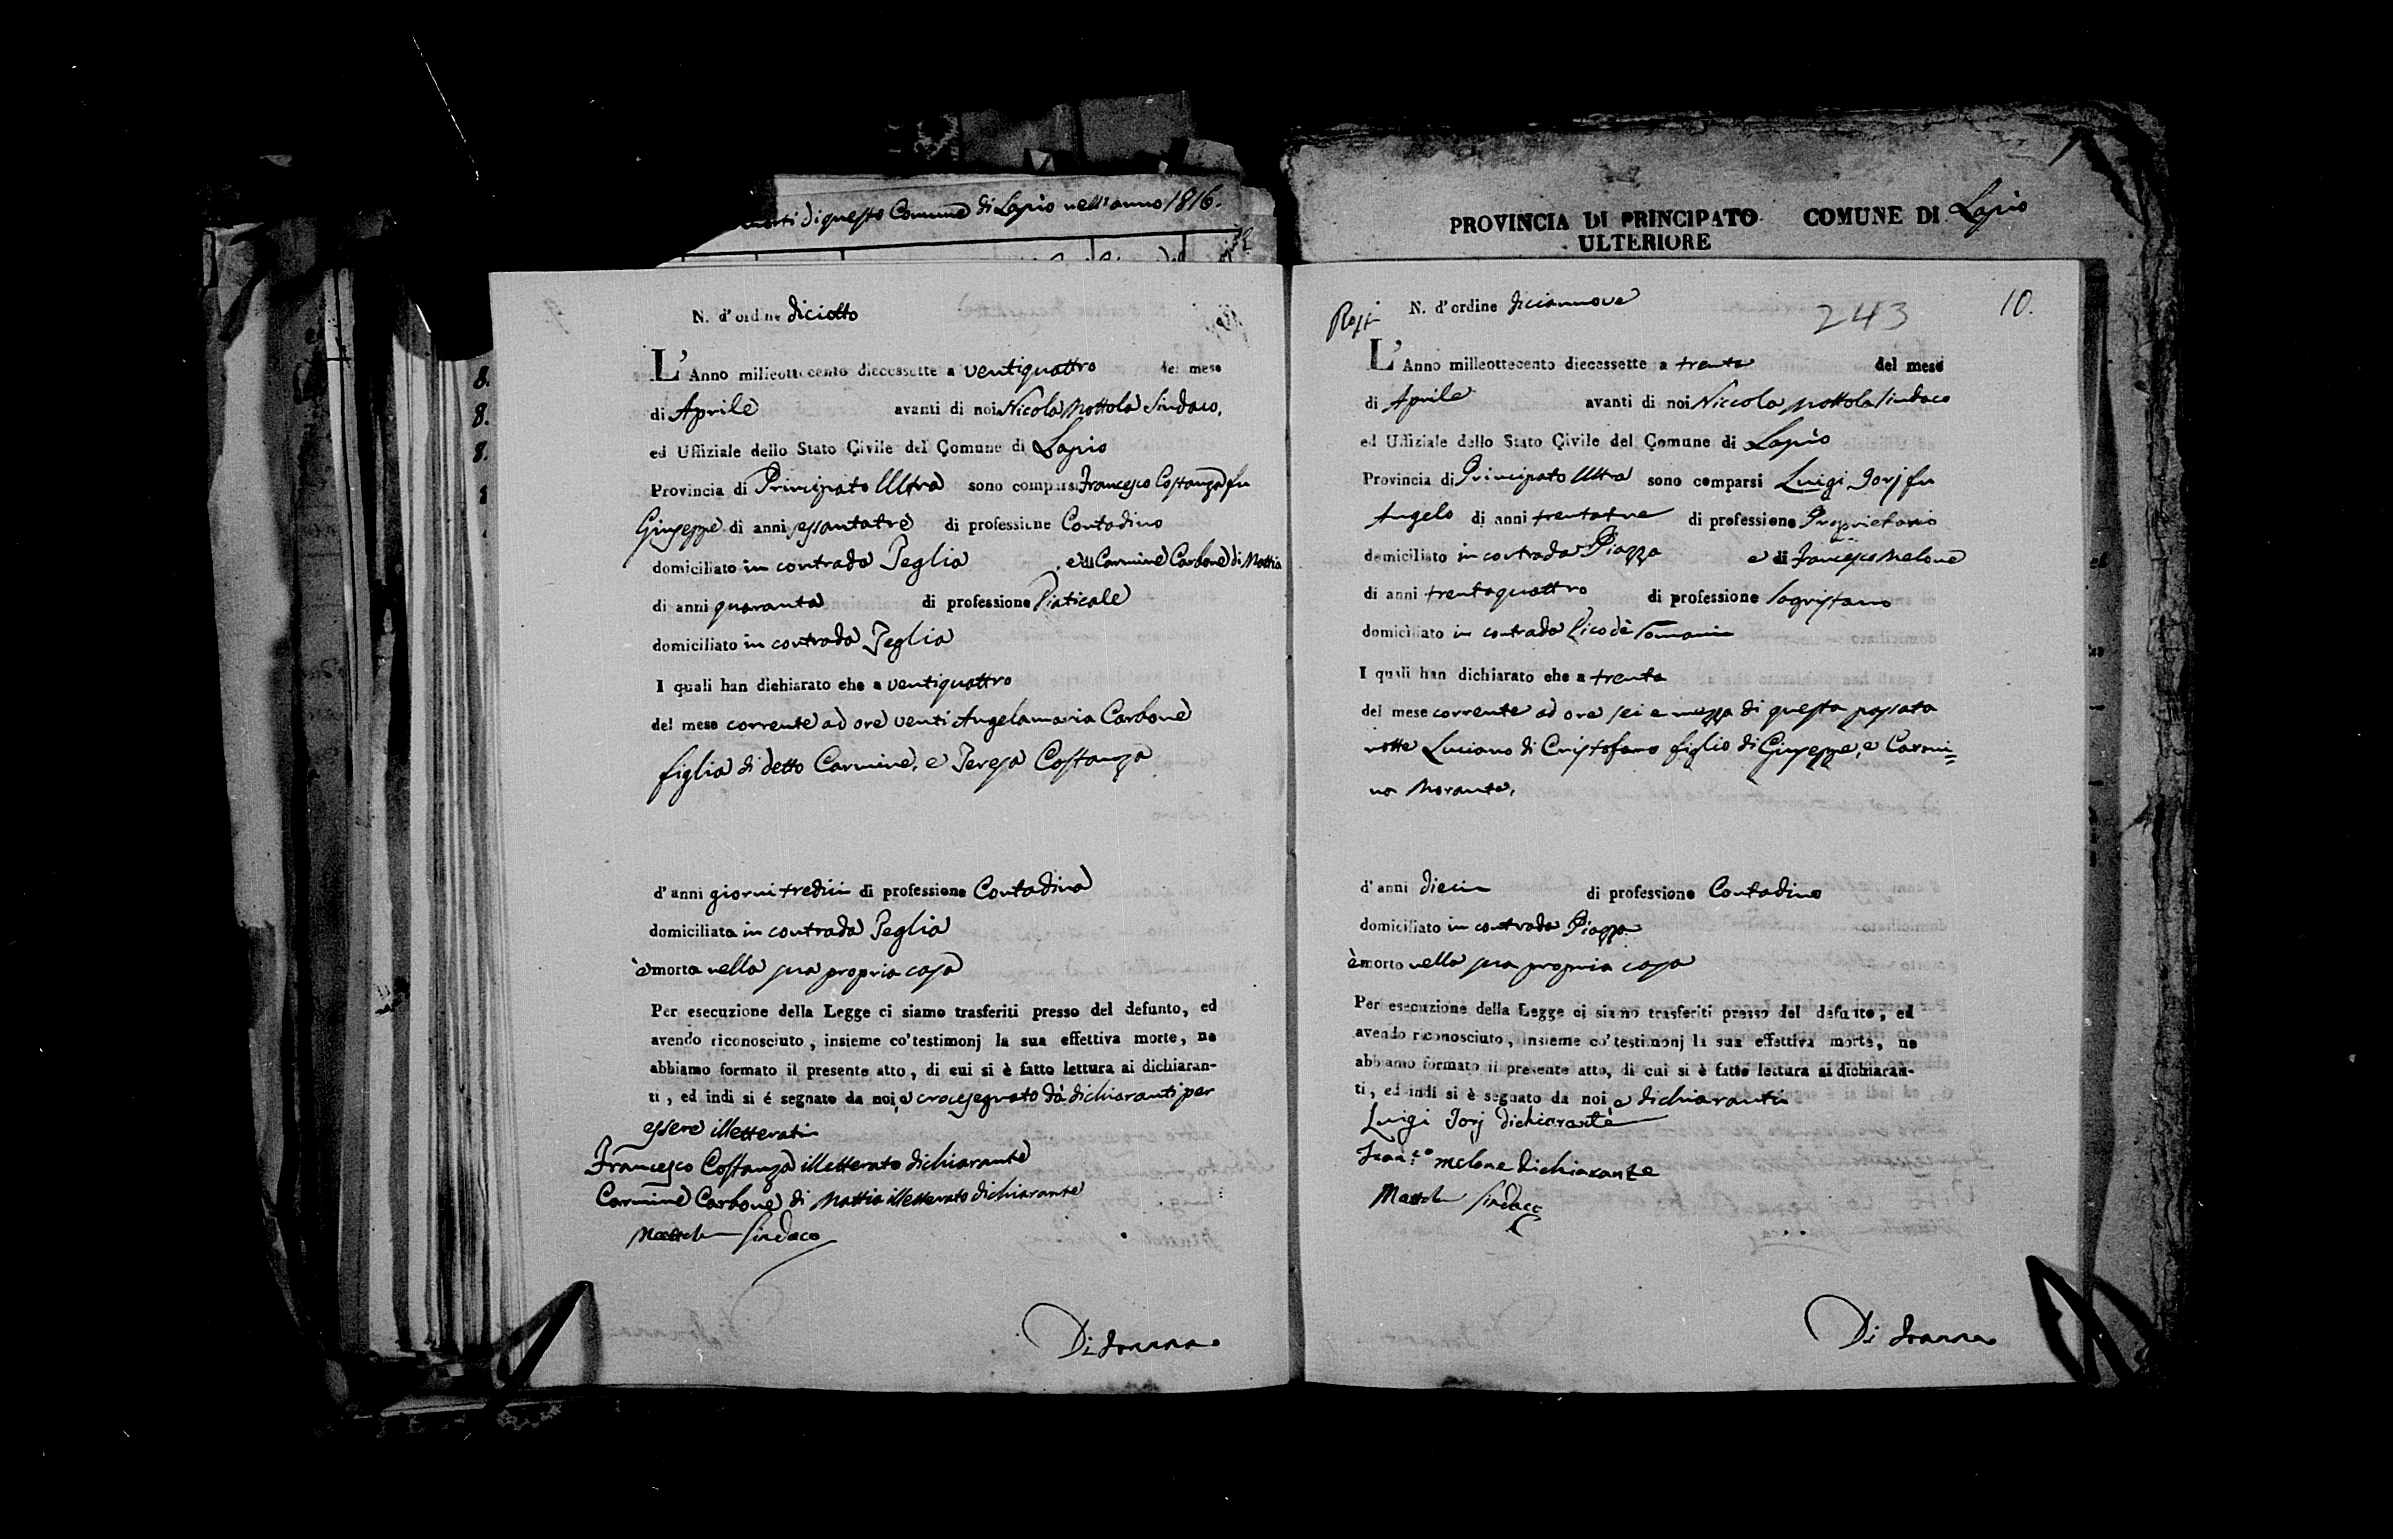 morti di questo Comune di Lapio nell'anno 1816.
PROVINCIA DI PRINCIPATO ULTERIORE COMUNE DI Lapio
N. d'ordine diciotto
L'Anno milleottocento diecessette a ventiquattro del mese
di Aprile avanti di noi Nicola Mottola Sindaco,
ed Uffiziale dello Stato Civile del Comune di Lapio
Provincia di Principato Ultra sono comparsi Francesco Costanza fu
Giuseppe di anni sessantatre di professione Contadino
domiciliato in contrada Teglia e di Carmine Carbone di Mattia
di anni quaranta di professione Viaticale
domiciliato in contrada Teglia
I quali han dichiarato che a ventiquattro
del mese corrente ad ore venti Angelamaria Carbone
figlia di detto Carmine, e Teresa Costanza
d'anni giorni tredici di professione Contadina
domiciliata in contrada Teglia
è morta nella sua propria casa
Per esecuzione della Legge ci siamo trasferiti presso del defunto, ed
avendo riconosciuto, insieme co' testimonj la sua effettiva morte, ne
abbiamo formato il presente atto, di cui si è fatto lettura ai dichiaran-
ti, ed indi si é segnato da noi, e crocesegnato dà dichiaranti per
essere illetterati
Francesco Costanza illetterato dichiarante
Carmine Carbone di Mattia illetterato dichiarante
Mottola Sindaco
Di Ioanna
243
10.
N. d'ordine diciannove
L'Anno milleottocento diecessette a trenta del mese
di Aprile avanti di noi Niccola Mottola Sindaco
ed Uffiziale dello Stato Civile del Comune di Lapio
Provincia di Principato Ultra sono comparsi Luigi Iorj fu
Angelo di anni trentatre di professione Proprietario
domiciliato in contrada Piazza e di Francesco Melone
di anni trentaquattro di professione Sagristano
domiciliato in contrada Vico dè
I quali han dichiarato che a trenta
del mese corrente ad ore sei e mezza di questa passata
notte Luciano di Cristofano figlio di Giuseppe, e Carmi=
na Morante,
d'anni dieci di professione Contadino
domiciliato in contrada Piazza
è morto nella sua propria casa
Per esecuzione della Legge ci siamo trasferiti presso del defunto, ed
avendo riconosciuto, insieme co' testimonj la sua effettiva morte, ne
abbiamo formato il presente atto, di cui si è fatto lettura ai dichiaran-
ti, ed indi si è segnato da noi e dichiaranti
Luigi Iorj dichiarante
Fran.co Melone dichiarante
Mottola Sindaco
Di Ioanna